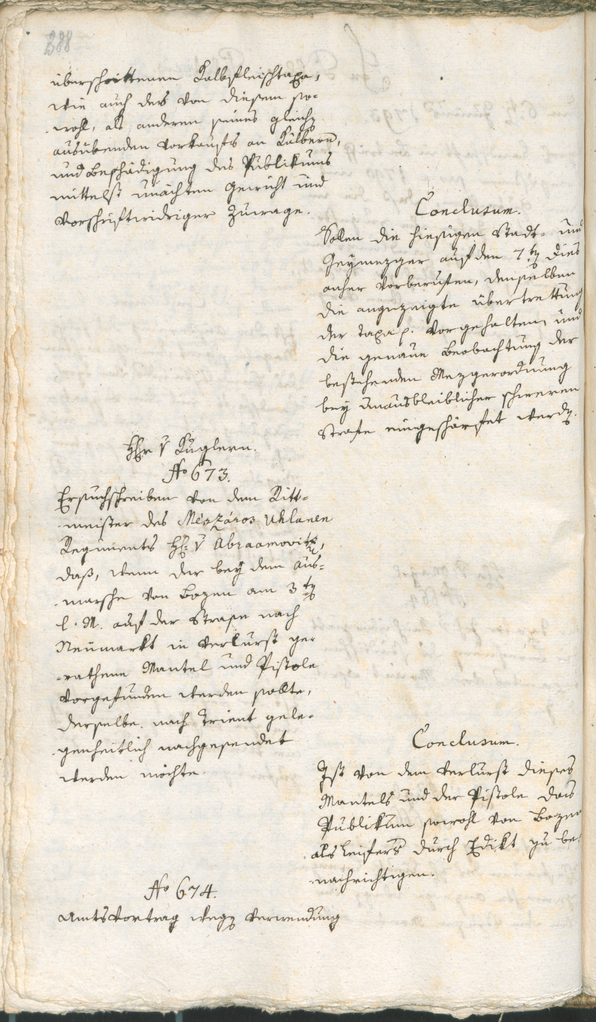 288
überschrittenen Kalbfleischtaxa,
wie auch des von diesem so-
wohl, als anderen seines gleich
ausübenden Vorkaufs an Kälbern,
und Beschädigung des Publikums
mittelst unächten Gewicht und
Vorschriftwidriger Zuwage.
Conclusum.
Sollen die hiesigen Stadt- und
Geymezger auf den 7ten dies
anher Vorberufen, denselben
die angezeigte übertrettung
der Taxa Vorgehalten, und
die genaue Beobachtung der
bestehenden Mezgerordnung
bey unausbleiblicher schweren
Strafe eingeschärfet werden.
Hr v Kuglern.
No 673.
Ersuchschreiben von dem Ritt-
meister des Meszáros Uhlanen
Regiments H: v Abraamovits,
daß, wenn der bey dem Aus-
marsche von Bozen am 3ten
l. M. auf der Strasse nach
Neumarkt in Verlurst ge-
rathene Mantel und Pistole
Vorgefunden werden sollte,
derselbe nach Trient gele-
genheitlich nachgesendet
werden möchte.
Conclusum.
Ist von dem Verlurst dieses
Mantels und der Pistole das
Publikum sowohl von Bozen
als Leifers durch Edikt zu be-
nachrichtigen.
No 674.
Amtsvortrag wegen Verwendung